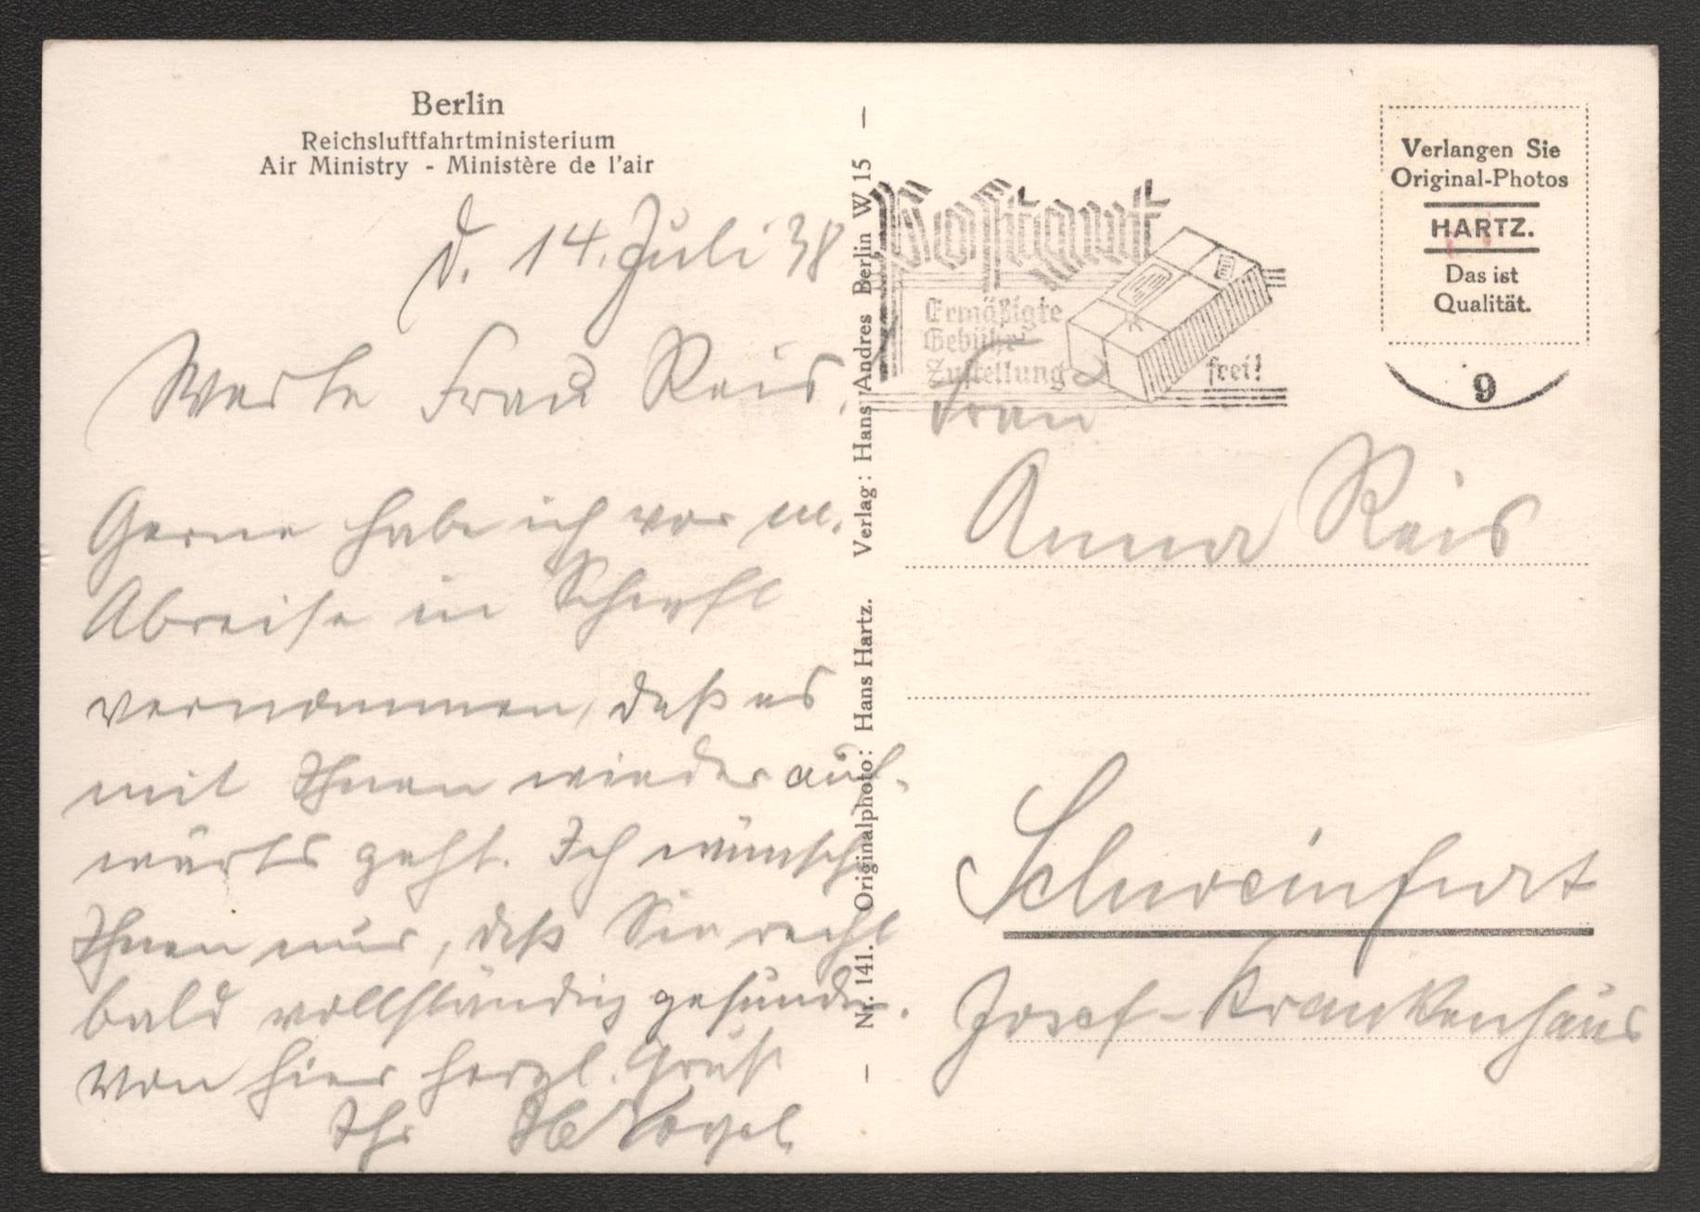 Berlin
Reichsluftfahrtministerium
Air Ministry - Ministère de l'air
d. 14. Juli 38
Werte Frau Reis!
Gerne habe ich vor m.
Abreise in
vernommen, daß es
mit Ihnen wieder auf-
wärts geht. Ich wünsche
Ihnen nur, daß Sie recht
bald vollständig gesunden.
Von hier herzl. Gruß
Ihr Vogel
Nr. 141. Originalphoto: Hans Hartz. Verlag: Hans Andres Berlin W 15
Postgut
Ermäßigte
Gebühr
Zustellung frei!
Verlangen Sie
Original-Photos
HARTZ.
Das ist
Qualität.
9
Frau
Anna Reis
Schweinfurt
Josef-Krankenhaus